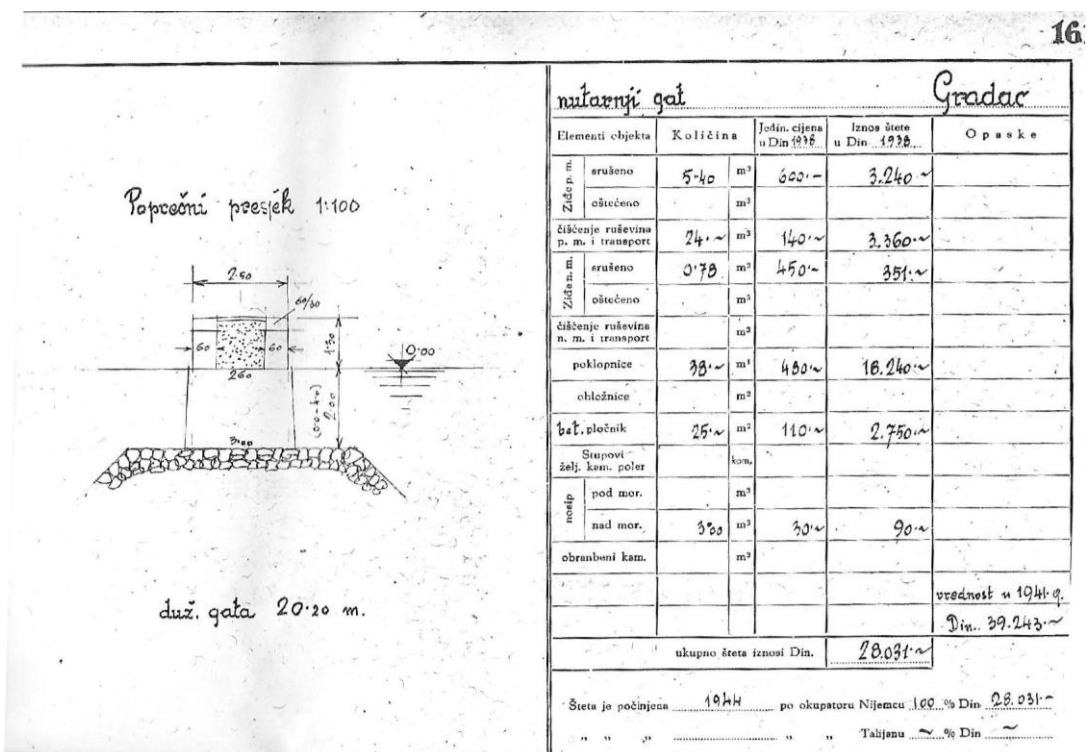 16
Poprečni presjek 1:100
2.50
60/30
60
60
1.30
0.00
260
2.00
3.00
duž. gata 20.20 m.
nutarnji gat Gradac
Elementi objekta Količina Jedin. cijena u Din 1938 Iznos štete u Din 1938 Opaske
Ziđe p. m. srušeno 5.40 m³ 600.- 3.240.~
oštećeno m³
čišćenje ruševina p. m. i transport 24.~ m³ 140.~ 3.360.~
Ziđe n. m. srušeno 0.78 m³ 450.- 351.~
oštećeno m³
čišćenje ruševina n. m. i transport m³
poklopnice 38.~ m¹ 480.~ 18.240.~
obložnice m²
bet. pločnik 25.~ m² 110.~ 2.750.~
Stupovi želj. kam. poler kom.
nosip pod mor. m³
nad mor. 3.00 m³ 30.~ 90.~
obranbeni kam. m³
vrednost u 1941. g.
Din.. 39.243.~
ukupno šteta iznosi Din. 28.031.~
Šteta je počinjena 1944 po okupatoru Nijemcu 100 % Din 28.031.-
" " " " " Talijanu ~ % Din ~